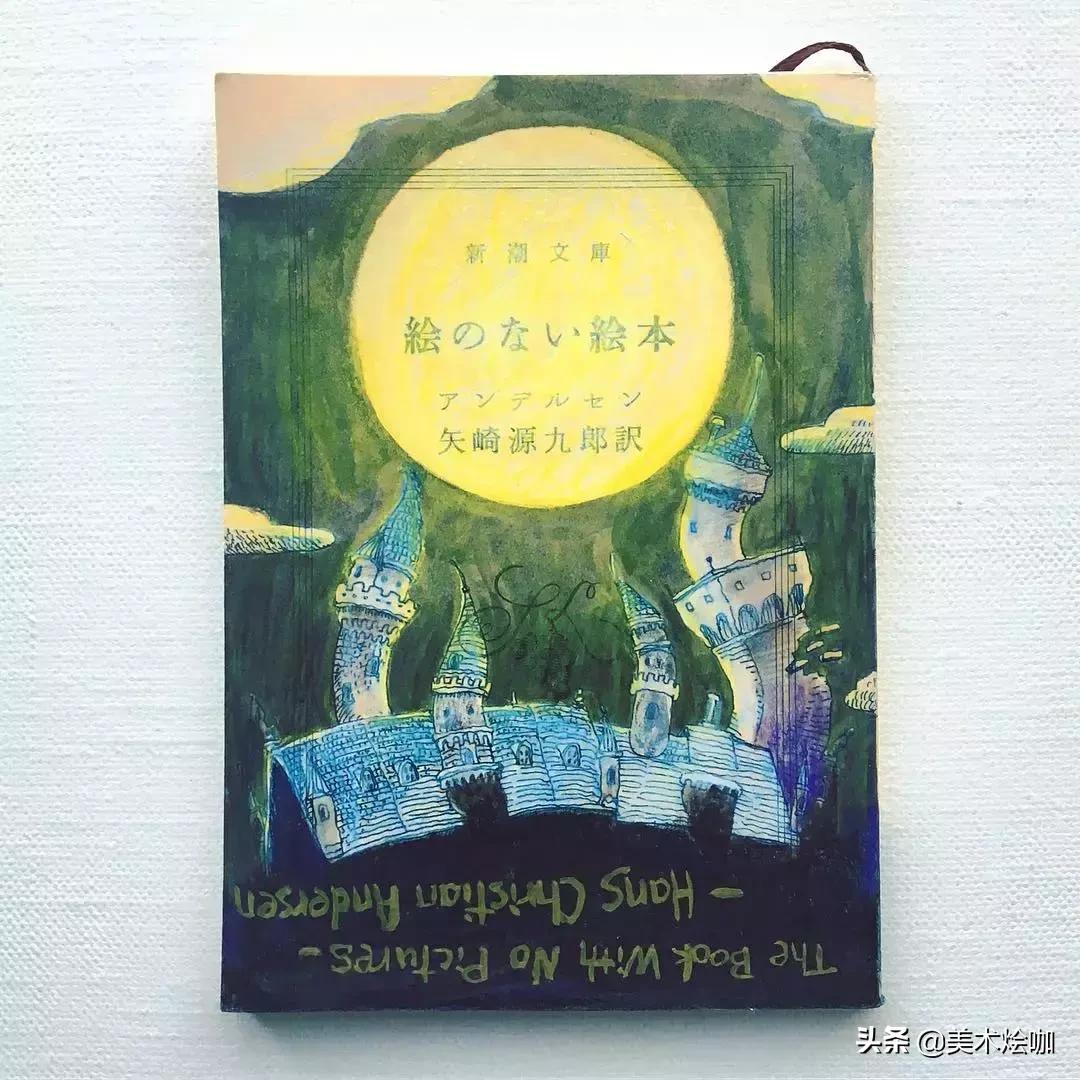 新潮文庫
絵のない絵本
アンデルセン
矢崎源九郎訳
The Book With No Pictures -
- Hans Christian Andersen
头条 @美术烩咖